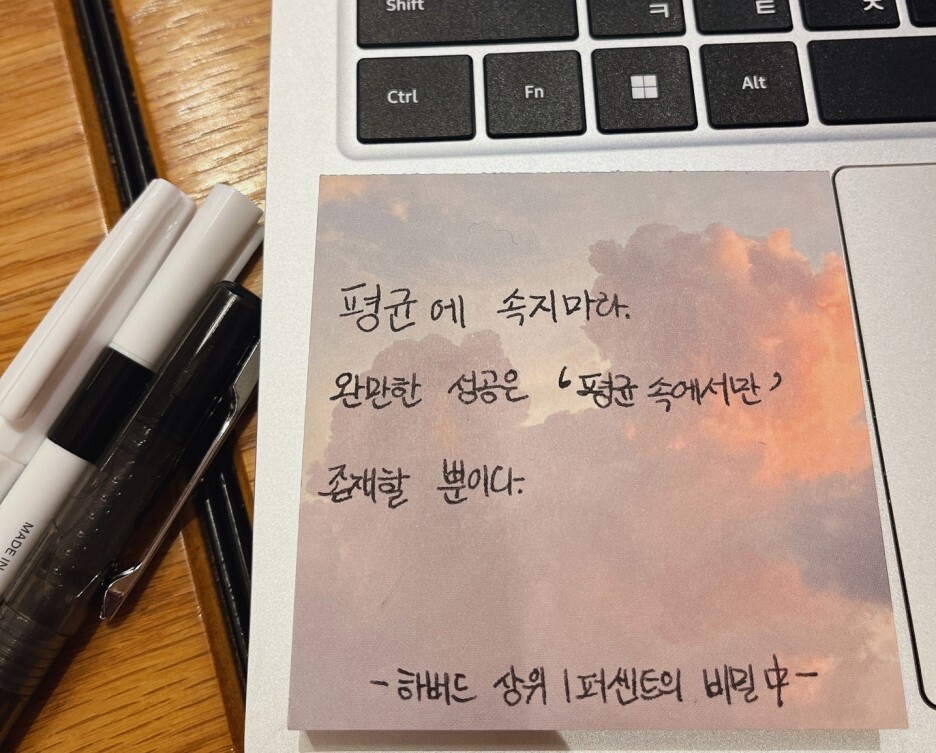 Shift
ㅋ ㅌ ㅊ
Ctrl Fn Alt
평균에 속지마라.
완만한 성공은 ‘평균 속에서만’
존재할 뿐이다.
- 하버드 상위 1퍼센트의 비밀 中 -
MADE IN